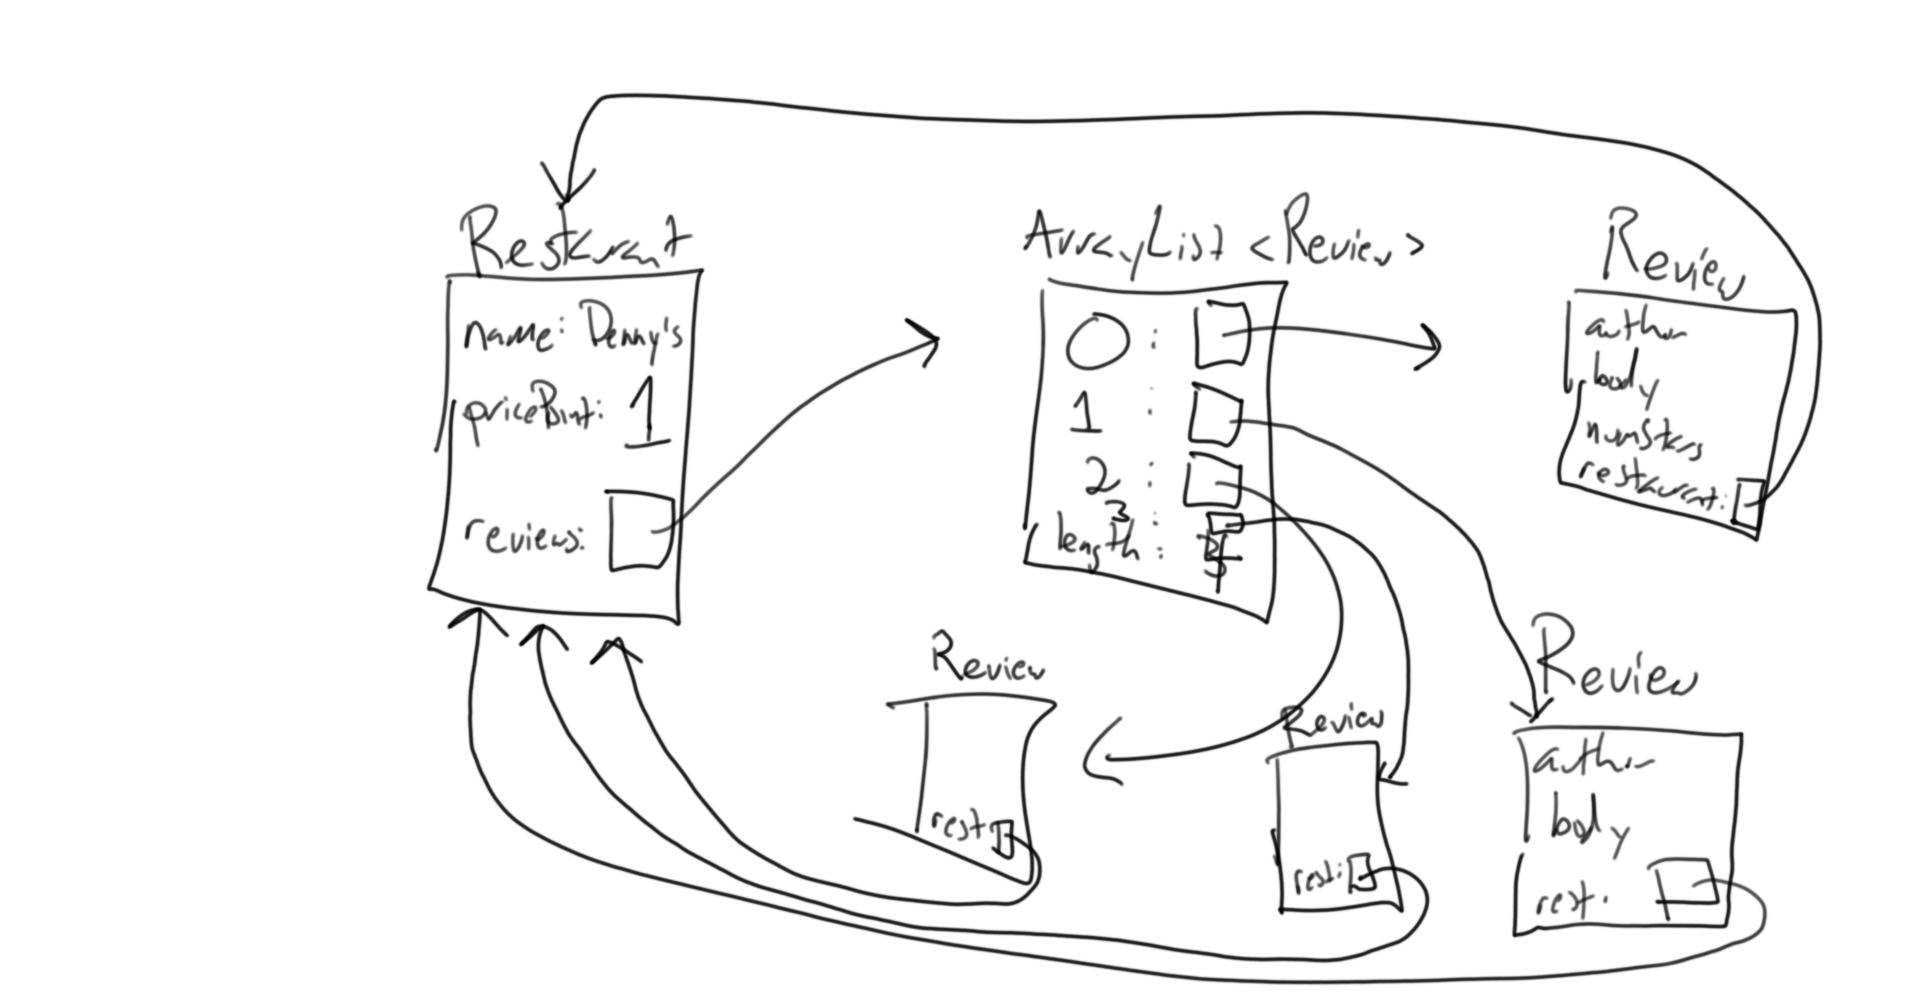 Restaurant
name: Denny's
pricePoint: 1
reviews:
ArrayList <Review>
0 :
1 :
2 :
3 :
length : 4
Review
author
body
numStars
restaurant:
Review
rest:
Review
rest:
Review
author
body
rest: